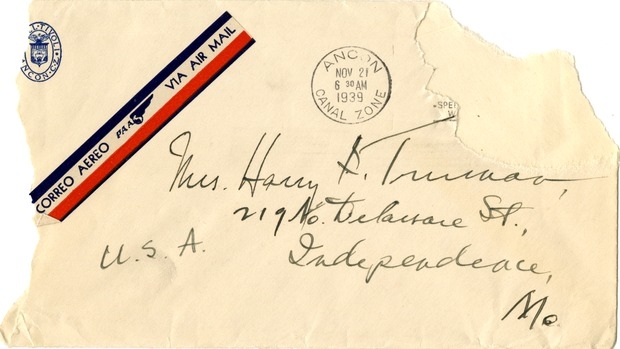 TIVOLI
ANCON, C.Z.
CORREO AEREO PAA VIA AIR MAIL
ANCON
NOV 21
6 30 AM
1939
CANAL ZONE
Mrs. Harry S. Truman,
219 No. Delaware St.,
U.S.A.
Independence,
Mo.